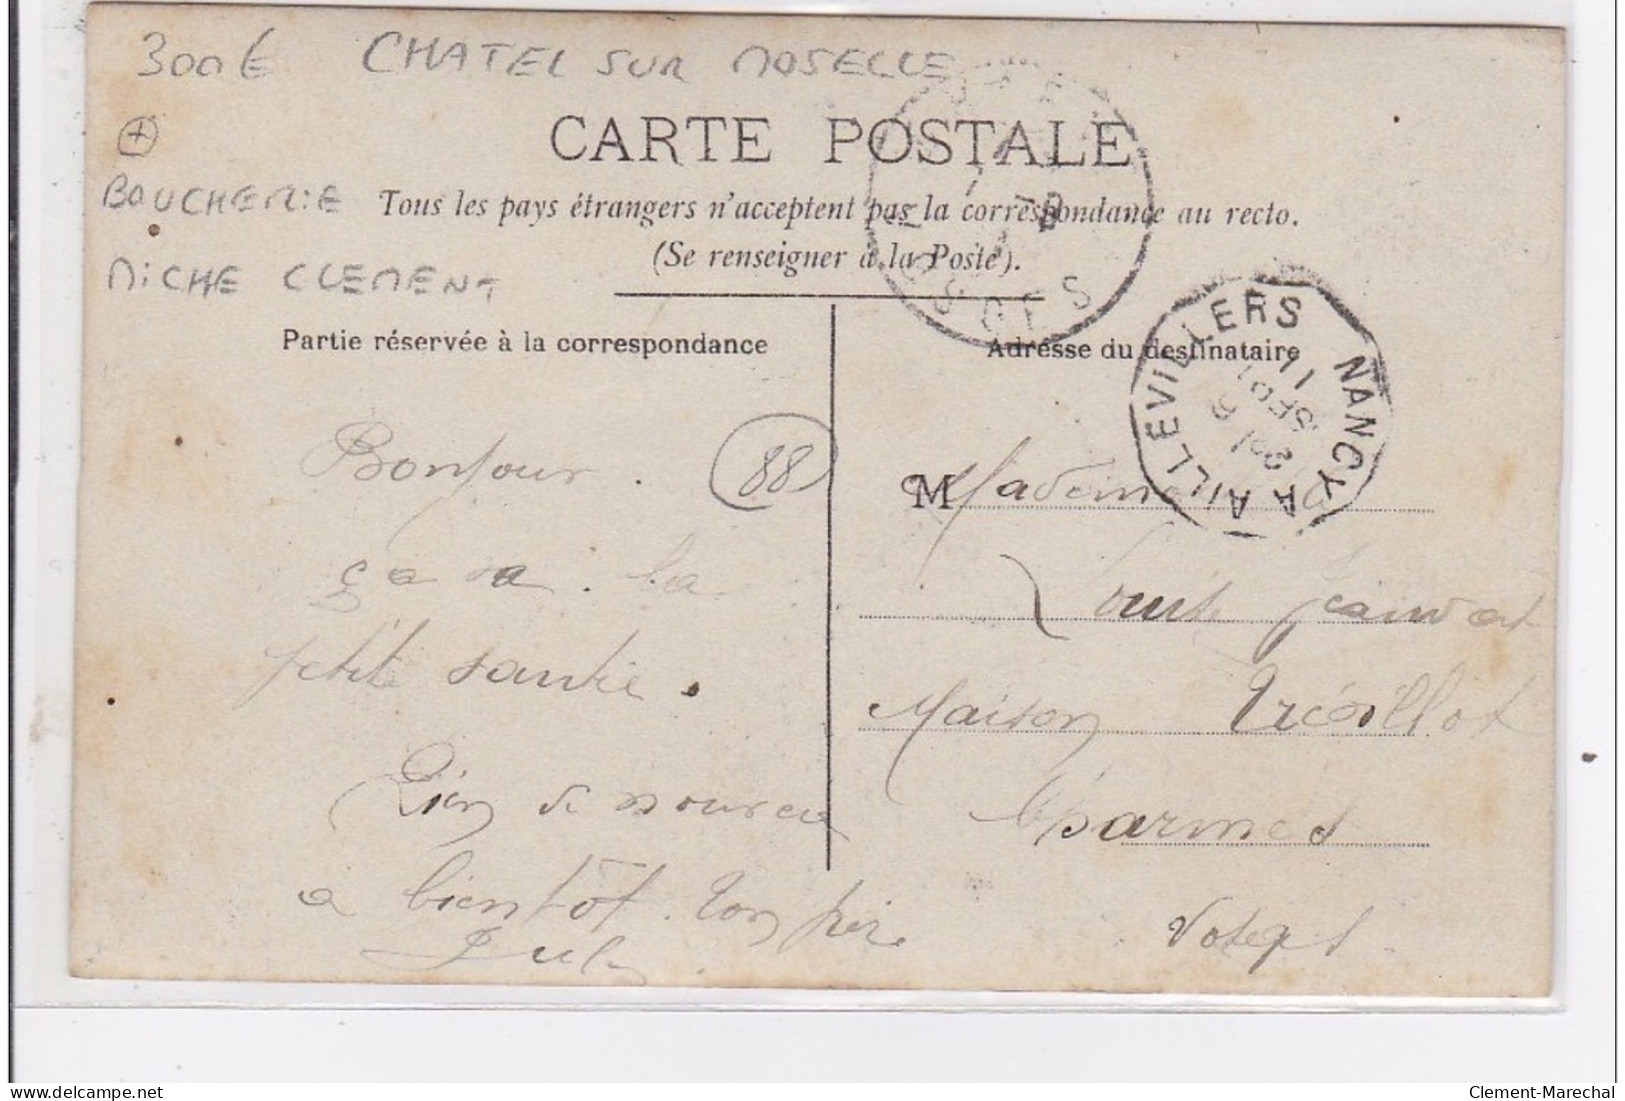 300€ CHATEL SUR MOSELLE
CARTE POSTALE
BOUCHERIE
Tous les pays étrangers n'acceptent pas la correspondance au recto.
(Se renseigner à la Poste).
MICHE CLEMENT
Partie réservée à la correspondance
Adresse du destinataire
NANCY A AILLEVILLERS
VOSGES
88
Bonjour.
ça va. la
petite santé.
Rien de nouveau
à bientôt. Ton père
Jules
M Mademoiselle
Louise
Maison
Charmes
Vosges
delcampe.net
Clement-Marechal